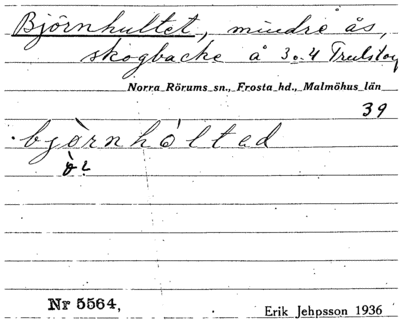 Björnhultet, mindre ås,
skogbacke å 3 o. 4 Trulstorp
Norra Rörums sn., Frosta hd., Malmöhus län
39
bjòrnhól̀tad
ò2
Nr 5564,
Erik Jehpsson 1936